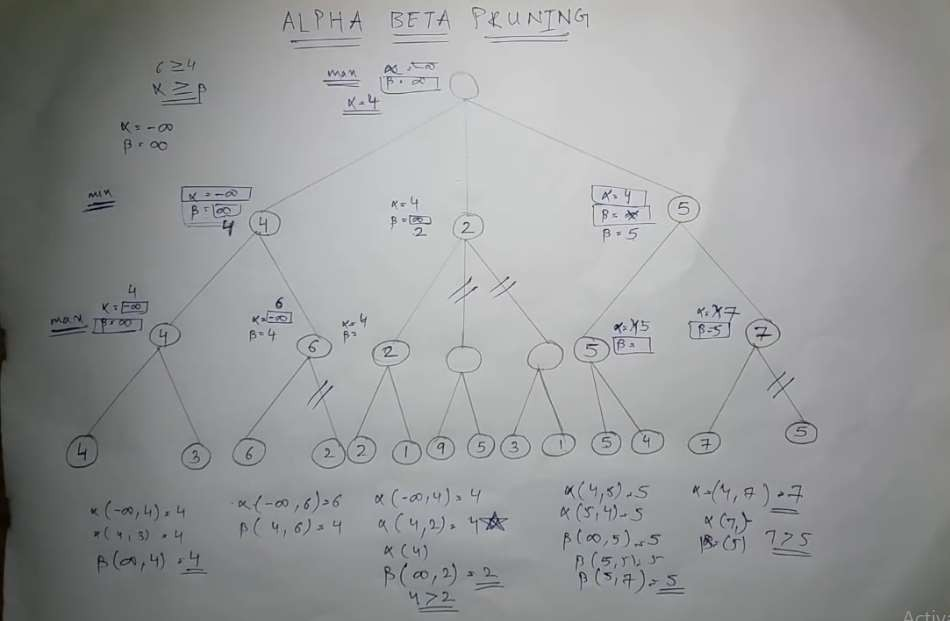 ALPHA BETA PRUNING
6 ≥ 4
α ≥ β
α = -∞
β = ∞
max
α = -∞
β = ∞
α = 4
min
α = -∞
β = ∞
4
4
α = 4
β = ∞
2
2
α = 4
β = ∞
β = 5
5
max
4
α = -∞
β = ∞
4
6
α = -∞
β = 4
6
α = 4
β =
2
5
α = 4 5
β =
α = 4 7
β = 5
7
4 3 6 2 2 1 9 5 3 1 5 4 7 5
α(-∞, 4) = 4
α(4, 3) = 4
β(∞, 4) = 4
α(-∞, 6) = 6
β(4, 6) = 4
α(-∞, 4) = 4
α(4, 2) = 4
α(4)
β(∞, 2) = 2
4 > 2
α(4, 5) = 5
α(5, 4) = 5
β(∞, 5) = 5
β(5, 5) = 5
β(5, 7) = 5
α = (4, 7) = 7
α(7,)
β = (5)
7 > 5
Activ